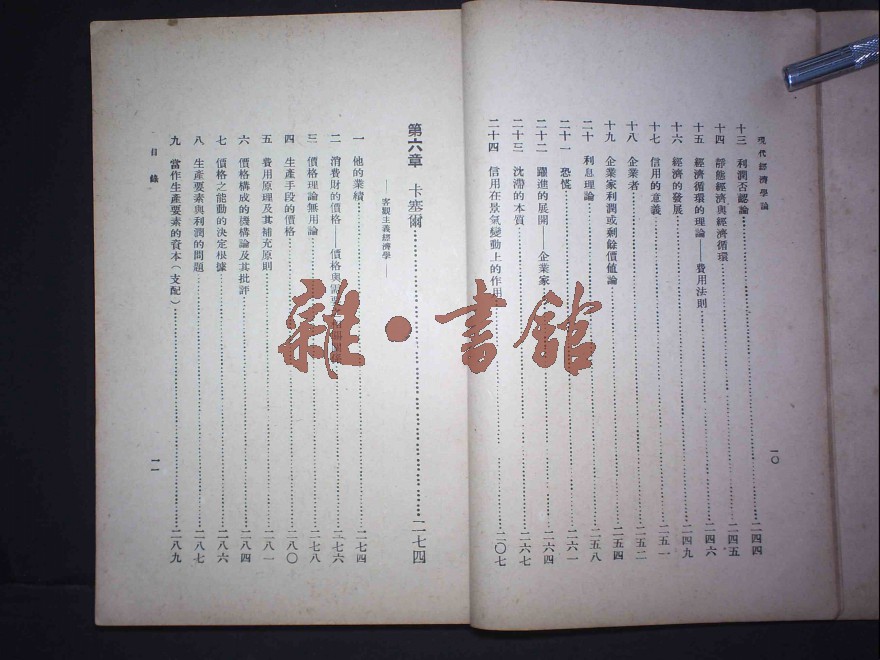 現代經濟學論
一〇
十三 利潤否認論……二四四
十四 靜態經濟與經濟循環……二四五
十五 經濟循環的理論——費用法則……二四六
十六 經濟的發展……二四九
十七 信用的意義……二五一
十八 企業者……二五二
十九 企業家利潤或剩餘價値論……二五四
二十 利息理論……二五八
二十一 恐慌……二六一
二十二 躍進的展開——企業家……二六四
二十三 沈滯的本質……二六七
二十四 信用在景氣變動上的作用……二〇七
第六章 卡塞爾……二七四
——客觀主義經濟學——
一 他的業績……二七四
二 消費財的價格——價格與需要……二七六
三 價格理論無用論……二七八
四 生產手段的價格……二八〇
五 費用原理及其補充原則……二八一
六 價格構成的機構論及其批評……二八四
七 價格之能動的決定根據……二八六
八 生產要素與利潤的問題……二八七
九 當作生產要素的資本(支配)……二八九
目錄
一一
雜·書館